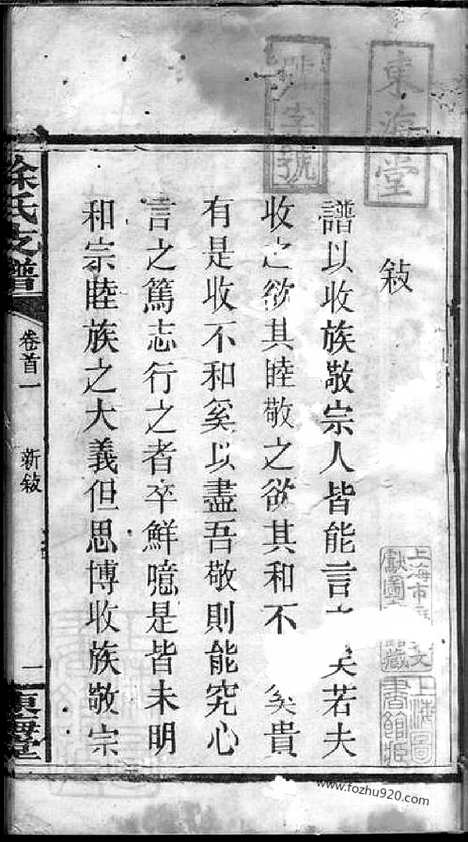 東海堂
敍
譜以收族敬宗人皆能言矣若夫
收之欲其睦敬之欲其和不矣貴
有是收不和奚以盡吾敬則能究心
言之篤志行之者卒鮮噫是皆未明
和宗睦族之大義但思博收族敬宗
徐氏支譜
卷首一
新敍
一
東海堂
www.fozhu920.com